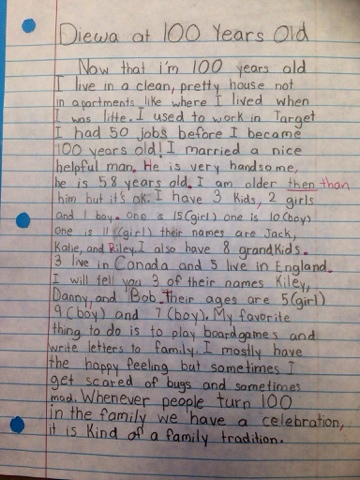 Diewa at 100 Years Old
Now that i'm 100 years old
I live in a clean, pretty house not
in apartments like where I lived when
I was litte. I used to work in Target
I had 50 jobs before I became
100 years old! I married a nice
helpful man. He is very handsome,
he is 58 years old. I am older then than
him but it's ok. I have 3 Kids, 2 girls
and 1 boy. One is 15(girl) one is 10(boy)
one is 11(girl) their names are Jack,
Kalie, and Riley. I also have 8 grandKids.
3 live in Canada and 5 live in England.
I will tell you 3 of their names Kiley,
Danny, and Bob. Their ages are 5(girl)
9(boy) and 7(boy). My favorite
thing to do is to play boardgames and
write letters to family. I mostly have
the happy feeling but sometimes I
get scared of bugs and sometimes
mad. Whenever people turn 100
in the family we have a celebration,
it is Kind of a family tradition.